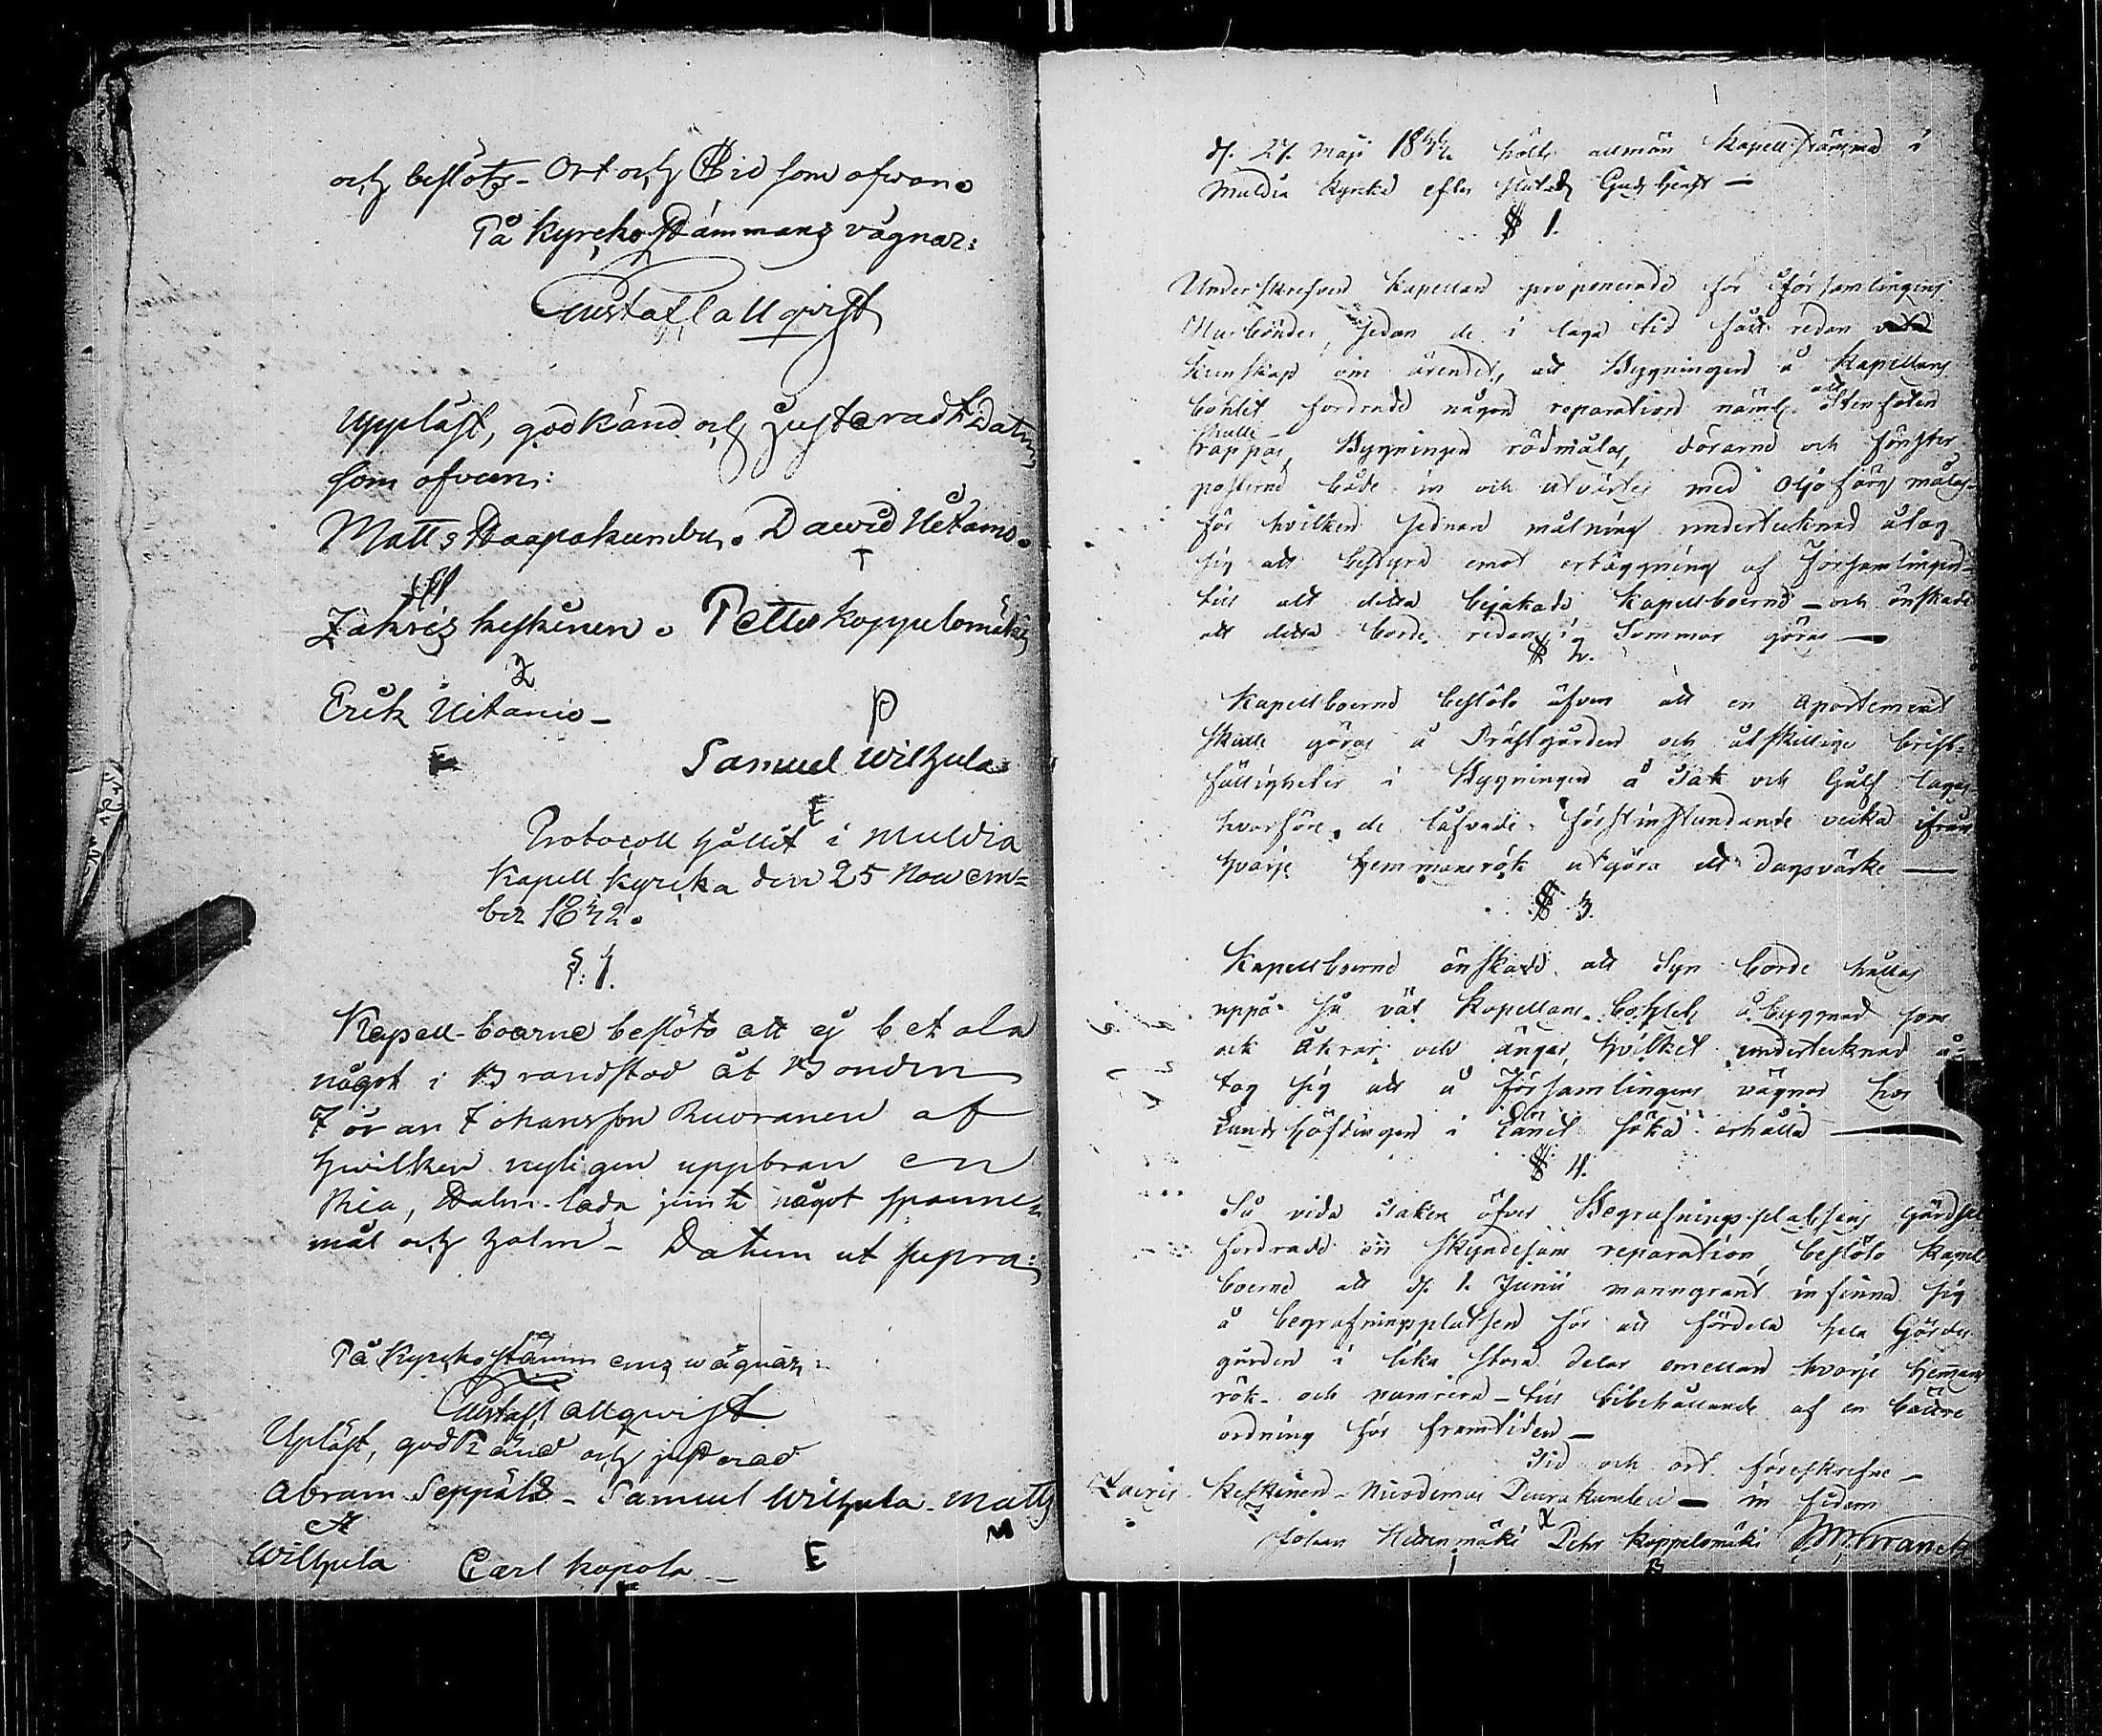 och beslöts. Ort och Tid som ofwan.
På Kyrcko Stämmans vägnar:
Gustaf Callqvist
Uppläst, godkänd och Justeradt Datum
som ofvan:
Matts Haapakumbu. Dawid Uitamo.
Zakris Keskinen. Petter Koppelomäki
Erik Uitamo
E
P
Samuel Wilhula
E
Protocoll hållit i Muldia
Kapell kyrcka den 25 Novem=
ber 1842.
§: 1.
Kapell-boarne beslöto att ej betala
något i Brandstod åt Bonden
Jöran Johansson Ruoranen af
hvilken nyligen uppbran en
Ria, Halm-lada jemte något spanne=
mål och halm. Datum ut supra:
På Kyrckostämmans wägnar:
Gustaf Callqwist
Upläst, godkänd och justerad
Abram Seppälä - Samuel Wilhula - Matts
A
M
Wilhula Carl Kapola
E
d. 27 Maji 1844 hölts allmän Kapell stämma i
Muldia Kyrcka efter slutad Gudstjenst —
§ 1.
Underskrefven Kapellan proponerade för Församlingens
Åbor bönder, sedan de i laga tid fått redan
kunskap om ärendet, att Bygningen å Kapellans
bohlet fordrade någon reparation näml. att stenfoten
skulle
rappas, Bygningen rödmålas, dörarne och fönster
posterne både in och utvärtes med Oljefärg målas
för hvilken sednare målning undertecknad åtog
sig att bestyra emot erläggning af Församlingen
till allt detta bejakade Kapellboerne - och önskade
att detta borde redan i Sommar göras —
§ 2.
Kapellboerne beslöto äfven att en Apartement
skulle göras å Prästgården och åtskillige brist=
fälligheter i Bygningen å Tak och Gålf lagas
hvarföre de låfvade förstinstundande vecka ifrån
hvarje Hemmansrök utgöra ett dagsvärke —
§ 3.
Kapellboerne önskade att Syn borde hållas
uppå så väl Kapellans Bohlets åbygnad som
ock Åkrar och ängar, hvilket undertecknad å=
tog sig att å Församlingens vägnar hos
Landshöfdingen i Länet söka erhålla —
§ 4.
Så vida Taken öfver Begrafningsplatsens Gärdsel
fordrade en skyndesam reparation, beslöto Kapell
boerne att d. 1. Junii manngrant infinna sig
å begrafningsplatsen för att fördela hela Gärdes
gården i lika stora delar emellan hvarje Hemmans
rök - och numrera - till bibehållande af en bättre
ordning för framtiden —
Tid och ort föreskrefne —
Zacris Keskinen - Nicodemus Peurakumbu — in fidem
Johan Hirvenmäki Pehr Koppelomäki